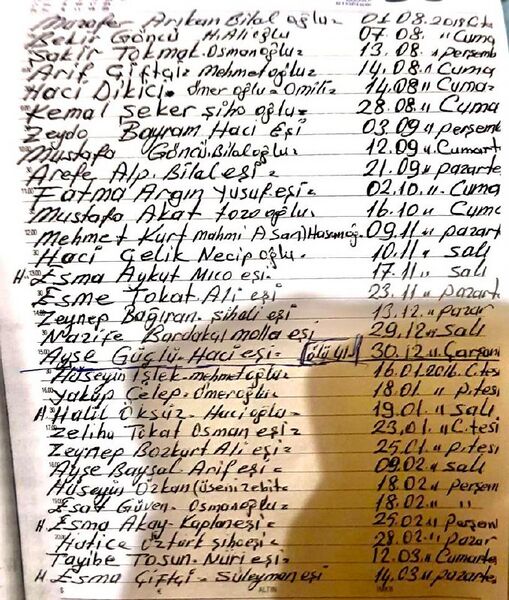 Muzafer Arıkan Bilal oğlu= 01.08.2015 C.te
Bekir Göncü H.Alioğlu 07.08. " Cuma
Şakir Tokmak. Osmanoğlu= 13.08." perşemb
Arif Çiftçi= Mehmetoğlu= 14.08." Cuma
Haci Dikici. Ömer oğlu= Omiti= 14.08" Cuma=
Kemal Şeker şiho oğlu= 28.08 " Cuma
Zeydo Bayram Haci Eşi 03.09 " perşem
Mustafa Göncü.Bilaloğlu= 12.09 ".Cumart
Arefe Alp. Bilal eşi= 21.09 " pazarte
Fatma Argın Yusuf eşi= 02.10.". Cuma
Mustafa Akat tozoğlu. 16.10 " Cuma
Mehmet Kurt mahmi Asan)Hasanoğ. 09.11 " pazart
Haci Çelik Necip oğlu. 10.11 " salı
H. Esma Aykut Mico eşi. 17.11 " salı
Esme Tokat Ali eşi 23.11 " pazart
Zeynep Bağıran. sihali eşi 13.12." pazar
Nazife Bardakçı molla eşi 29.12 " salı
Ayşe Güçlü. Haci eşi= ölü yıl 30.12 " Çarşam
Hüseyin işlek.mehmetoğlu= 16.01.2016.C.tesi
Yakup Çelep. Ömeroğlu. 18.01 " p.tesi
H Halil Öksüz. Hacioğlu= 19.01 " salı.
Zeliha Tokat Osman eşi= 23.01. " C.tesi
Zeynep Bozkurt Ali eşi= 25.01 " p.tesi
Ayşe Baysal. Arif eşi= 09.02 " salı
Hüseyin Özkan(üsenizebit= 18.02 " perşem
Esat Güven. Osmanoğlu= 18.02 " "
H. Esma Akay. Kaplaneşi= 25.02 " perşem
Hatice Öztürk şıhceşi= 28.02 " pazar
Tayibe Tosun. Nuri eşi= 12.03 " Cumarte
H Esma Çiftçi. Süleyman eşi 14.03 " pazarte
$ € ALTIN